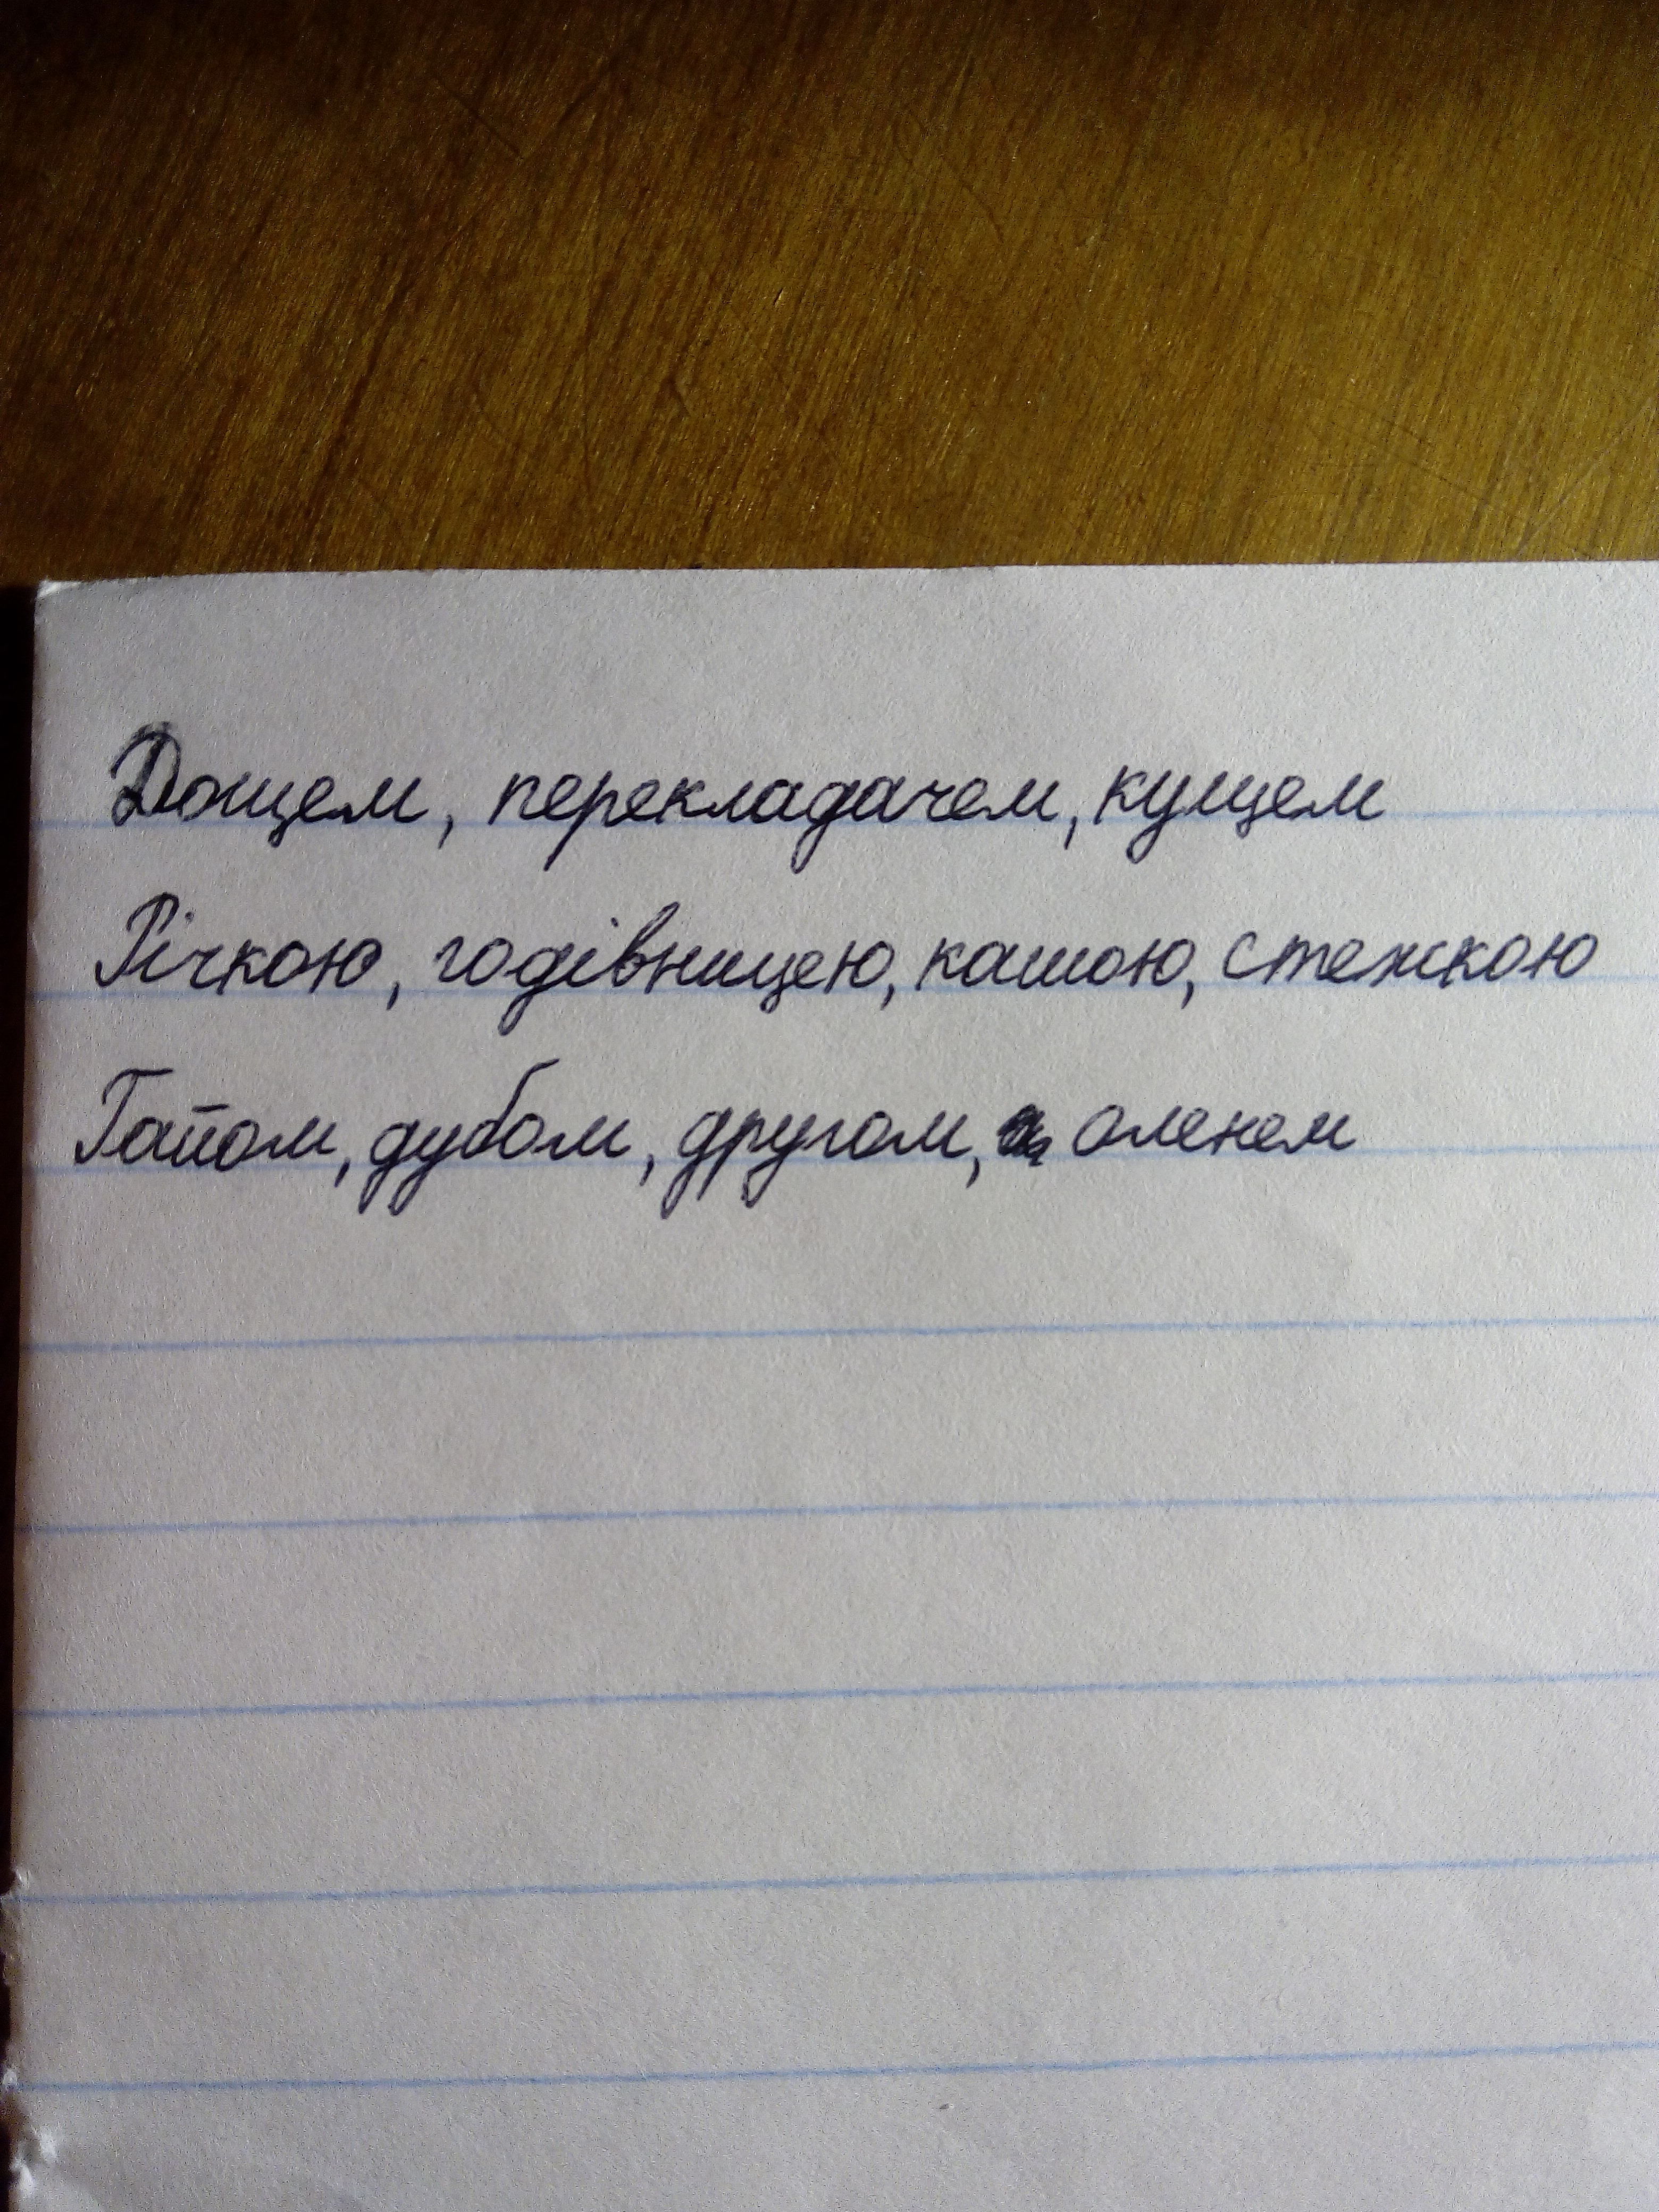 Дощем, перекладачем, кущем
Річкою, годівницею, кашою, стежкою
Гайом, дубом, другом, оленем